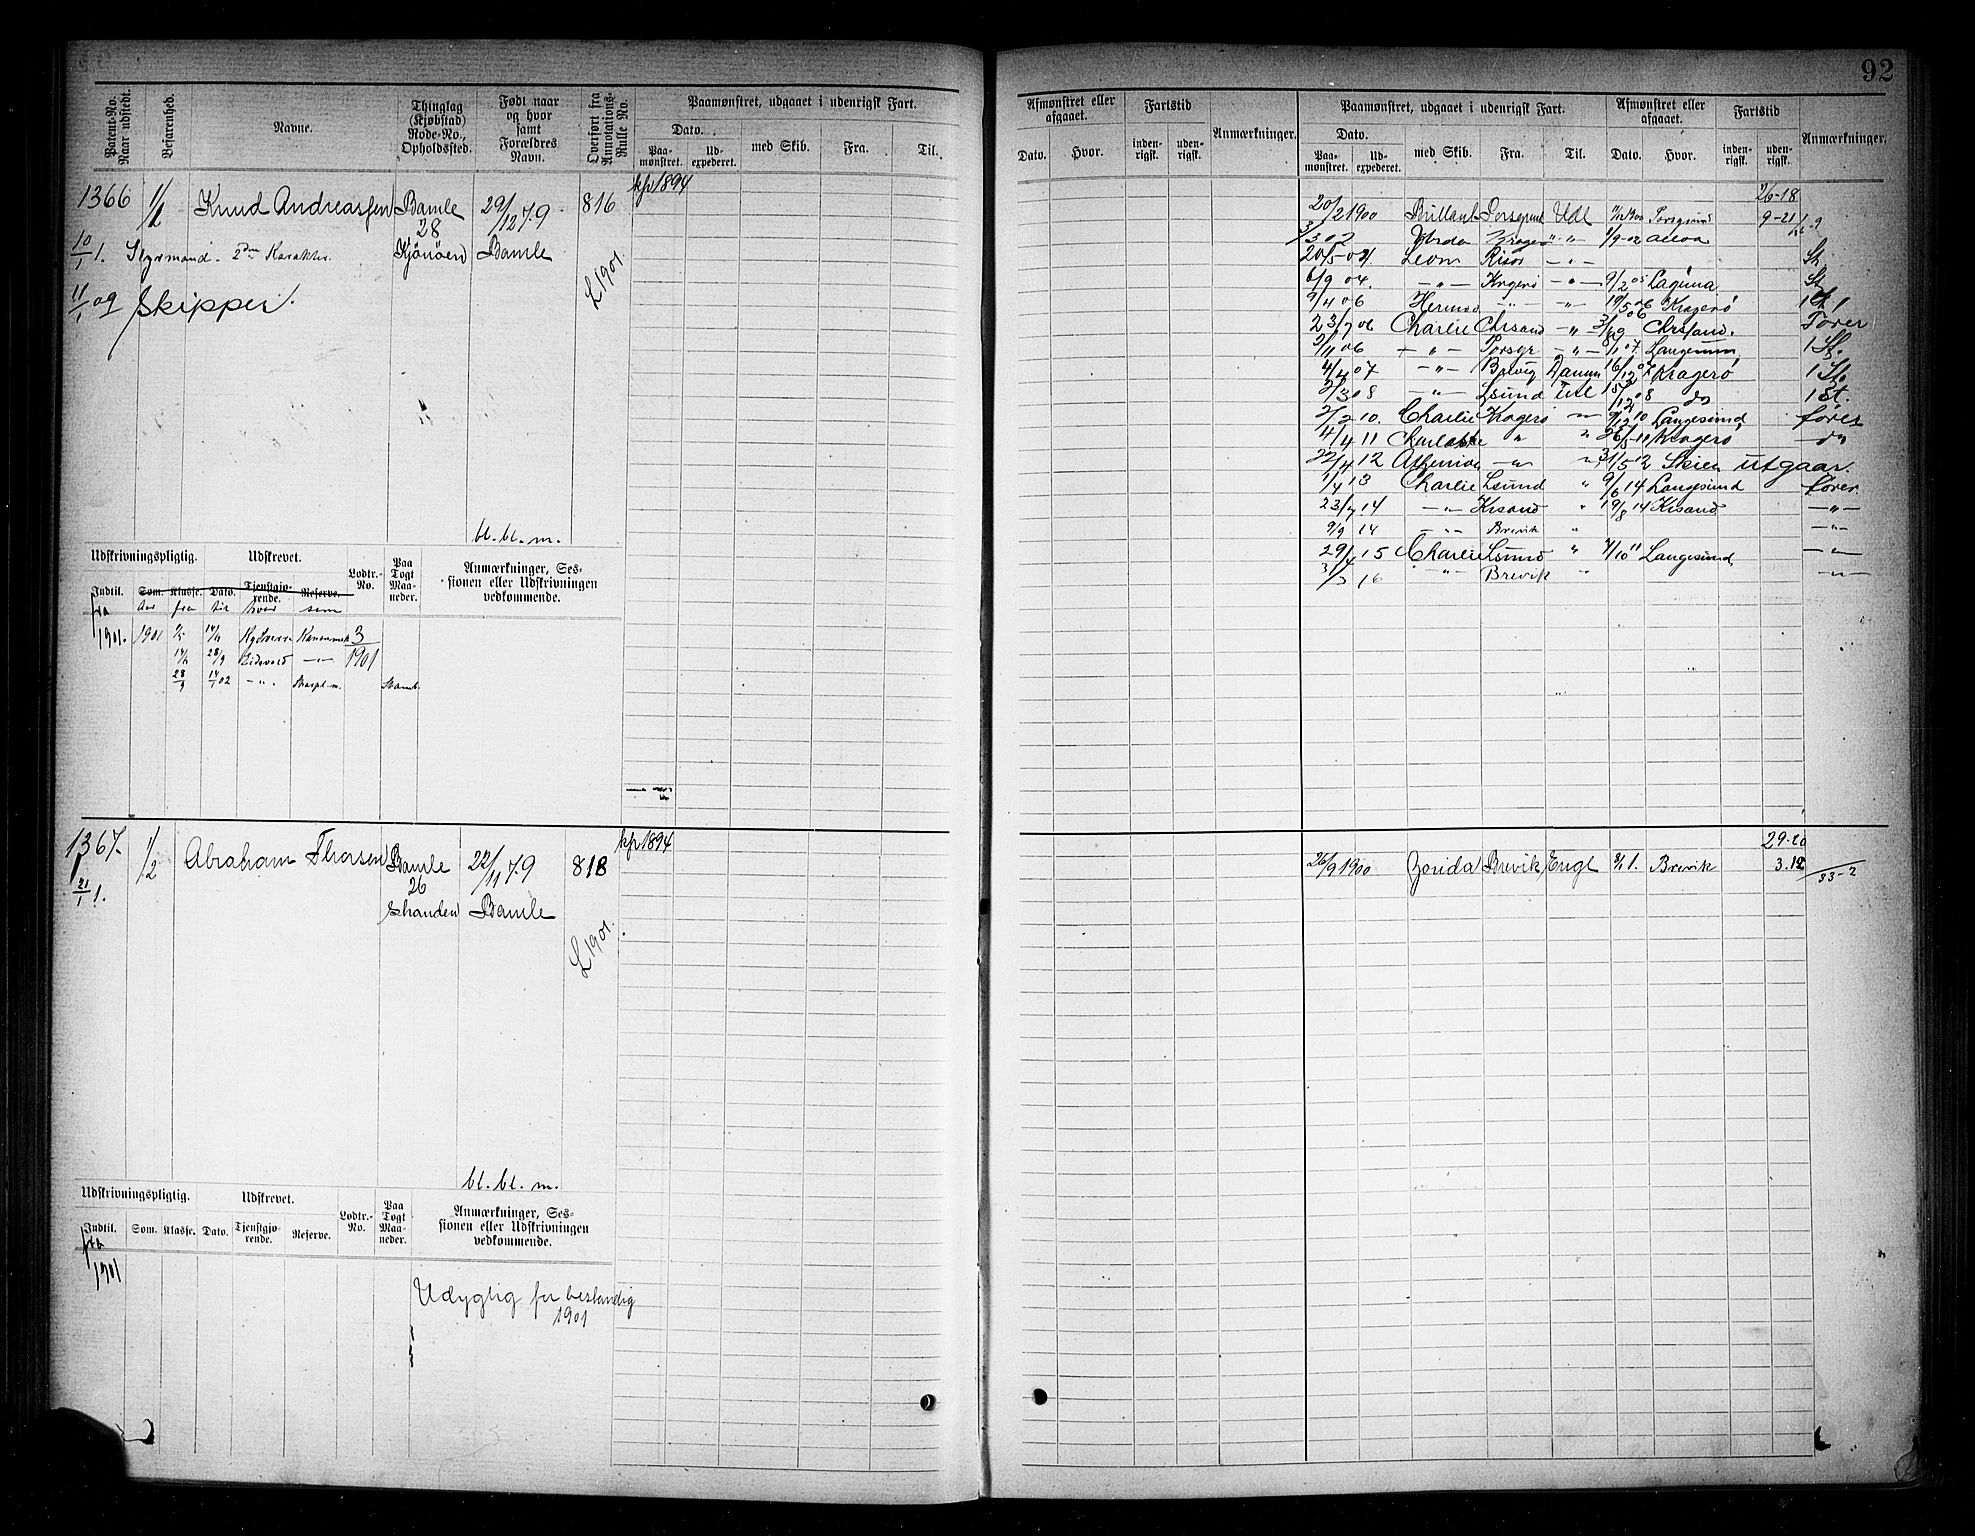 92
Patent-No. Naar udstedt.
Besfarenhed.
Navne.
Thinglag (Kjøbstad) Rode-No., Opholdssted.
Født naar og hvor samt Forældres Navn.
Overført fra Annotations-Rulle No.
Paamønstret, udgaaet i udenrigsk Fart.
Dato.
Paa-mønstret. Ud-expederet. med Skib. Fra. Til.
Afmønstret eller afgaaet. Fartstid Anmærkninger.
Dato. Hvor. inden-rigsk. uden-rigsk.
Paamønstret, udgaaet i udenrigsk Fart. Afmønstret eller afgaaet. Fartstid Anmærkninger.
Dato.
Paa-mønstret. Ud-expederet. med Skib. Fra. Til. Dato. Hvor. inden-rigsk. uden-rigsk.
1366 Knud Andreassen Bamle 29/12 79 816 kp 1894
28
10/1 1. Styrmand. Kjönöen Bamle
L 1901.
11/1 09 Skipper.
bl. bl. m.
7/6-18
20/2 1900 Brillant Porsgrund Udl Porsgrund 9-21
3/3 02 Kragerø " " 1/9-02
20/5-04 Leon Risør - " - St.
6/9 04. - " - Krgerø - " - 9/2 05 Laguna St
9/4 06 Hermod - " - - " - 19/5 06 Kragerø 1 St
23/7 06 Charlie Chrsand - " - Chrsand. Fører
2/11 06 - " - Porsgr - " - 8/1 07. Langesund 1 St.
4/4 07 - " - 16/12 07 Kragerø 1 St.
2/3 08 - " - Lsund Udl 15/12 08 do 1 St.
2/2 10. Charlie Kragerø 9/12 10 Langesund fører
4/4 11 " " 26/5-11 Kragerø - do
22/4 12 - " - " 31/5 12 Skien utgaar.
1/4 13 Charlie Lsund " 9/6 14 Langesund fører.
23/7 14 - " - Krsand " 19/8 14 Krsand - " -
9/9 14 - " - Brevik " - " -
29/4 15 Charlie Lsund " 4/10 11 Langesund - " -
3/3 16 " Brevik " - " -
Udskrivningspligtig. Udskrevet. Lodtr.-No. Paa Togt Maa-neder. Anmærkninger, Ses-sionen eller Udskrivningen vedkommende.
Indtil. Som. Klasse. Dato. Tjenstgjø-rende. Reserve.
fra Aar fra til hvor som
1901. 1901 3/1901
Eidsvold - " -
28/9 14/1 02 - " -
1367. 1/2 Abraham Thorsen Bamle 22/11 79 818 kp 1894
26
21/1 1. Bamle
L 1901.
bl. bl. m.
29-20
26/9 1900 Zorida Brevik Engl 1. Brevik 3.12
33-2
Udskrivningspligtig. Udskrevet. Lodtr.-No. Paa Togt Maa-neder. Anmærkninger, Ses-sionen eller Udskrivningen vedkommende.
Indtil. Som. Klasse. Dato. Tjenstgjø-rende. Reserve.
fra
1901
Udygtig for bestandig
1901